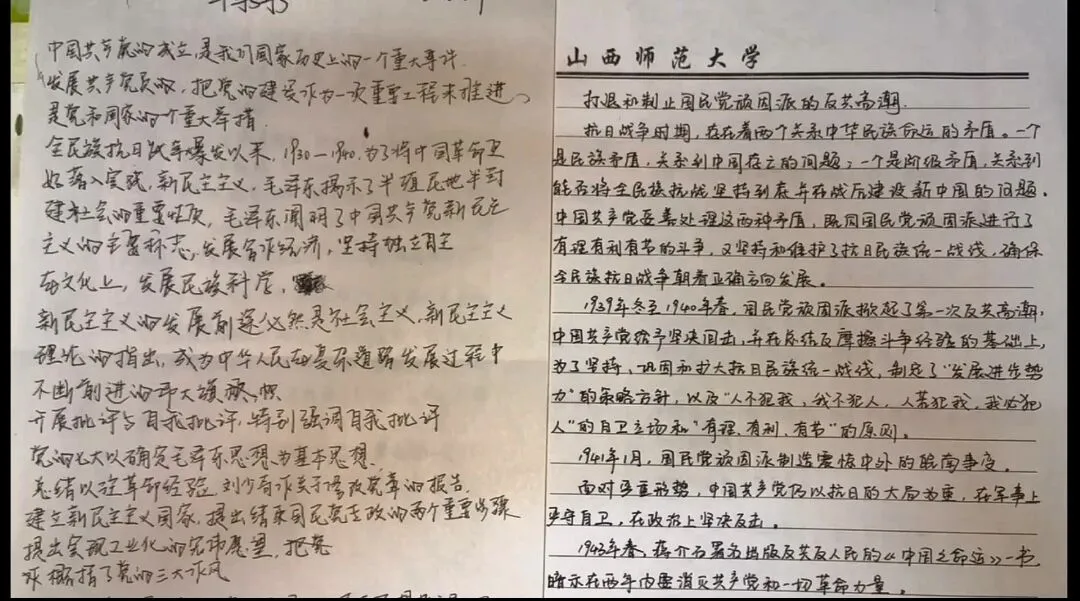 中国共产党的成立,是我们国家历史上的一个重大事件.
发展共产党员的,把党的建设作为一次重要工程来推进、
是党和国家的一个重大举措.
全民族抗日战争爆发以来,1930—1940.为了将中国革命更
好落入实践,新民主主义,毛泽东揭示了半殖民地半封
建社会的重要性质,毛泽东阐明了中国共产党新民主
主义的主要标志,发展合作经济,坚持独立自主
在文化上,发展民族科学,
新民主主义的发展前途必然是社会主义,新民主主义
理论的指出,成为中华人民在复兴道路发展过程中
不断前进的伟大旗帜
开展批评与自我批评,特别强调自我批评
党的七大以确定毛泽东思想为基本思想.
总结以往革命经验,刘少奇作关于修改党章的报告.
建立新民主主义国家,提出结束国民党专政的两个重要步骤
提出实现工业化的宏伟愿望,把党
概括了党的三大作风
山西师范大学
打退和制止国民党顽固派的反共高潮.
抗日战争时期,存在着两个关系中华民族命运的矛盾。一个
是民族矛盾,关系到中国存亡的问题;一个是阶级矛盾,关系到
能否将全民族抗战坚持到底并在战后建设新中国的问题.
中国共产党妥善处理这两种矛盾,既同国民党顽固派进行了
有理有利有节的斗争,又坚持和维护了抗日民族统一战线,确保
全民族抗日战争朝着正确方向发展。
1939年冬至1940年春,国民党顽固派掀起了第一次反共高潮,
中国共产党给予坚决回击,并在总结反摩擦斗争经验的基础上,
为了坚持、巩固和扩大抗日民族统一战线,制定了“发展进步势
力”的策略方针,以及“人不犯我,我不犯人,人若犯我,我必犯
人”的自卫立场和“有理、有利、有节”的原则。
1941年1月,国民党顽固派制造震惊中外的皖南事变。
面对严重形势,中国共产党仍以抗日的大局为重,在军事上
严守自卫,在政治上坚决反击。
1943年春,蒋介石署名出版反共反人民的《中国之命运》一书,
暗示在两年内要消灭共产党和一切革命力量。